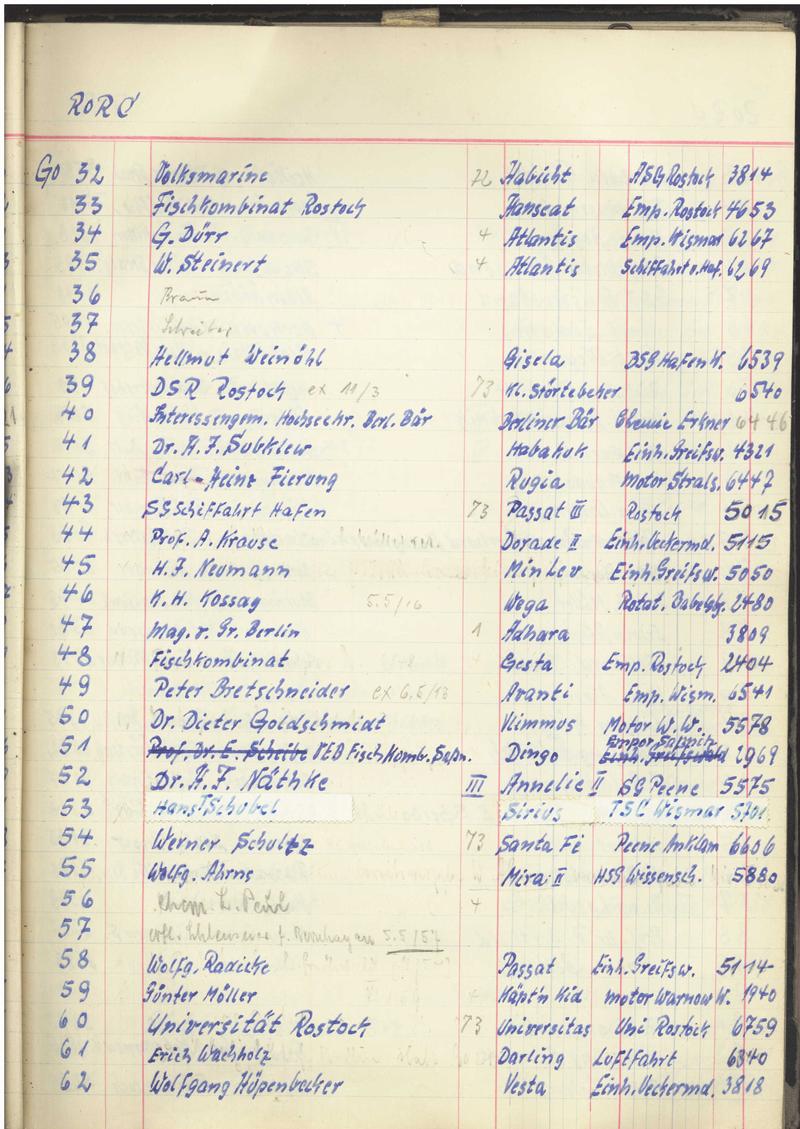 RORC
Go 32 Volksmarine 72 Habicht ASG Rostock 3814
33 Fischkombinat Rostock Hanseat Emp. Rostock 4653
34 G. Dürr 4 Atlantis Emp. Wismar 6267
35 W. Steinert 4 Atlantis Schiffahrt u. Haf. 6269
36 Braun
37 Schreiber
38 Hellmut Weinöhl Gisela BSG Hafen W. 6539
39 DSR Rostock ex 11/3 73 Kl. Störtebeker 6540
40 Interessengem. Hochseechr. Berl. Bär Berliner Bär Chemie Erkner 6446
41 Dr. H. F. Subklew Habakuk Einh. Greifsw. 4321
42 Carl-Heinz Fierung Rugia Motor Strals. 6447
43 SG Schiffahrt Hafen 73 Passat III Rostock 5015
44 Prof. A. Krause Dorade II Einh. Ueckermd. 5115
45 H. F. Neumann Min Lev Einh. Greifsw. 5050
46 K. H. Kossag 5.5/16 Wega Rotat. Babelsbg. 2480
47 Mag. v. Gr. Berlin 1 Adhara 3809
48 Fischkombinat Gesta Emp. Rostock 2404
49 Peter Bretschneider ex 6,5/13 Avanti Emp. Wism. 6541
50 Dr. Dieter Goldschmidt Vlimmus Motor W. W. 5578
51 Prof. Dr. E. Scheibe VEB Fisch Komb. Saßn. Dingo Empor Saßnitz Einh. Greifswald 2969
52 Dr. H. F. Näthke III Annelie II SG Peene 5575
53 Hans Schubel Sirius TSC Wismar 5701
54 Werner Schultz 73 Santa Fé Peene Anklam 6606
55 Wolfg. Ahrns Mira II HSG Wissensch. 5880
56 L. Paul 4
57 5.5/57
58 Wolfg. Radicke Passat Einh. Greifsw. 5114
59 Günter Möller Käpt'n Kid Motor Warnow W. 1940
60 Universität Rostock 73 Universitas Uni Rostock 6759
61 Erich Wachholz Darling Luftfahrt 6340
62 Wolfgang Höpenbecker Vesta Einh. Ueckermd. 3818